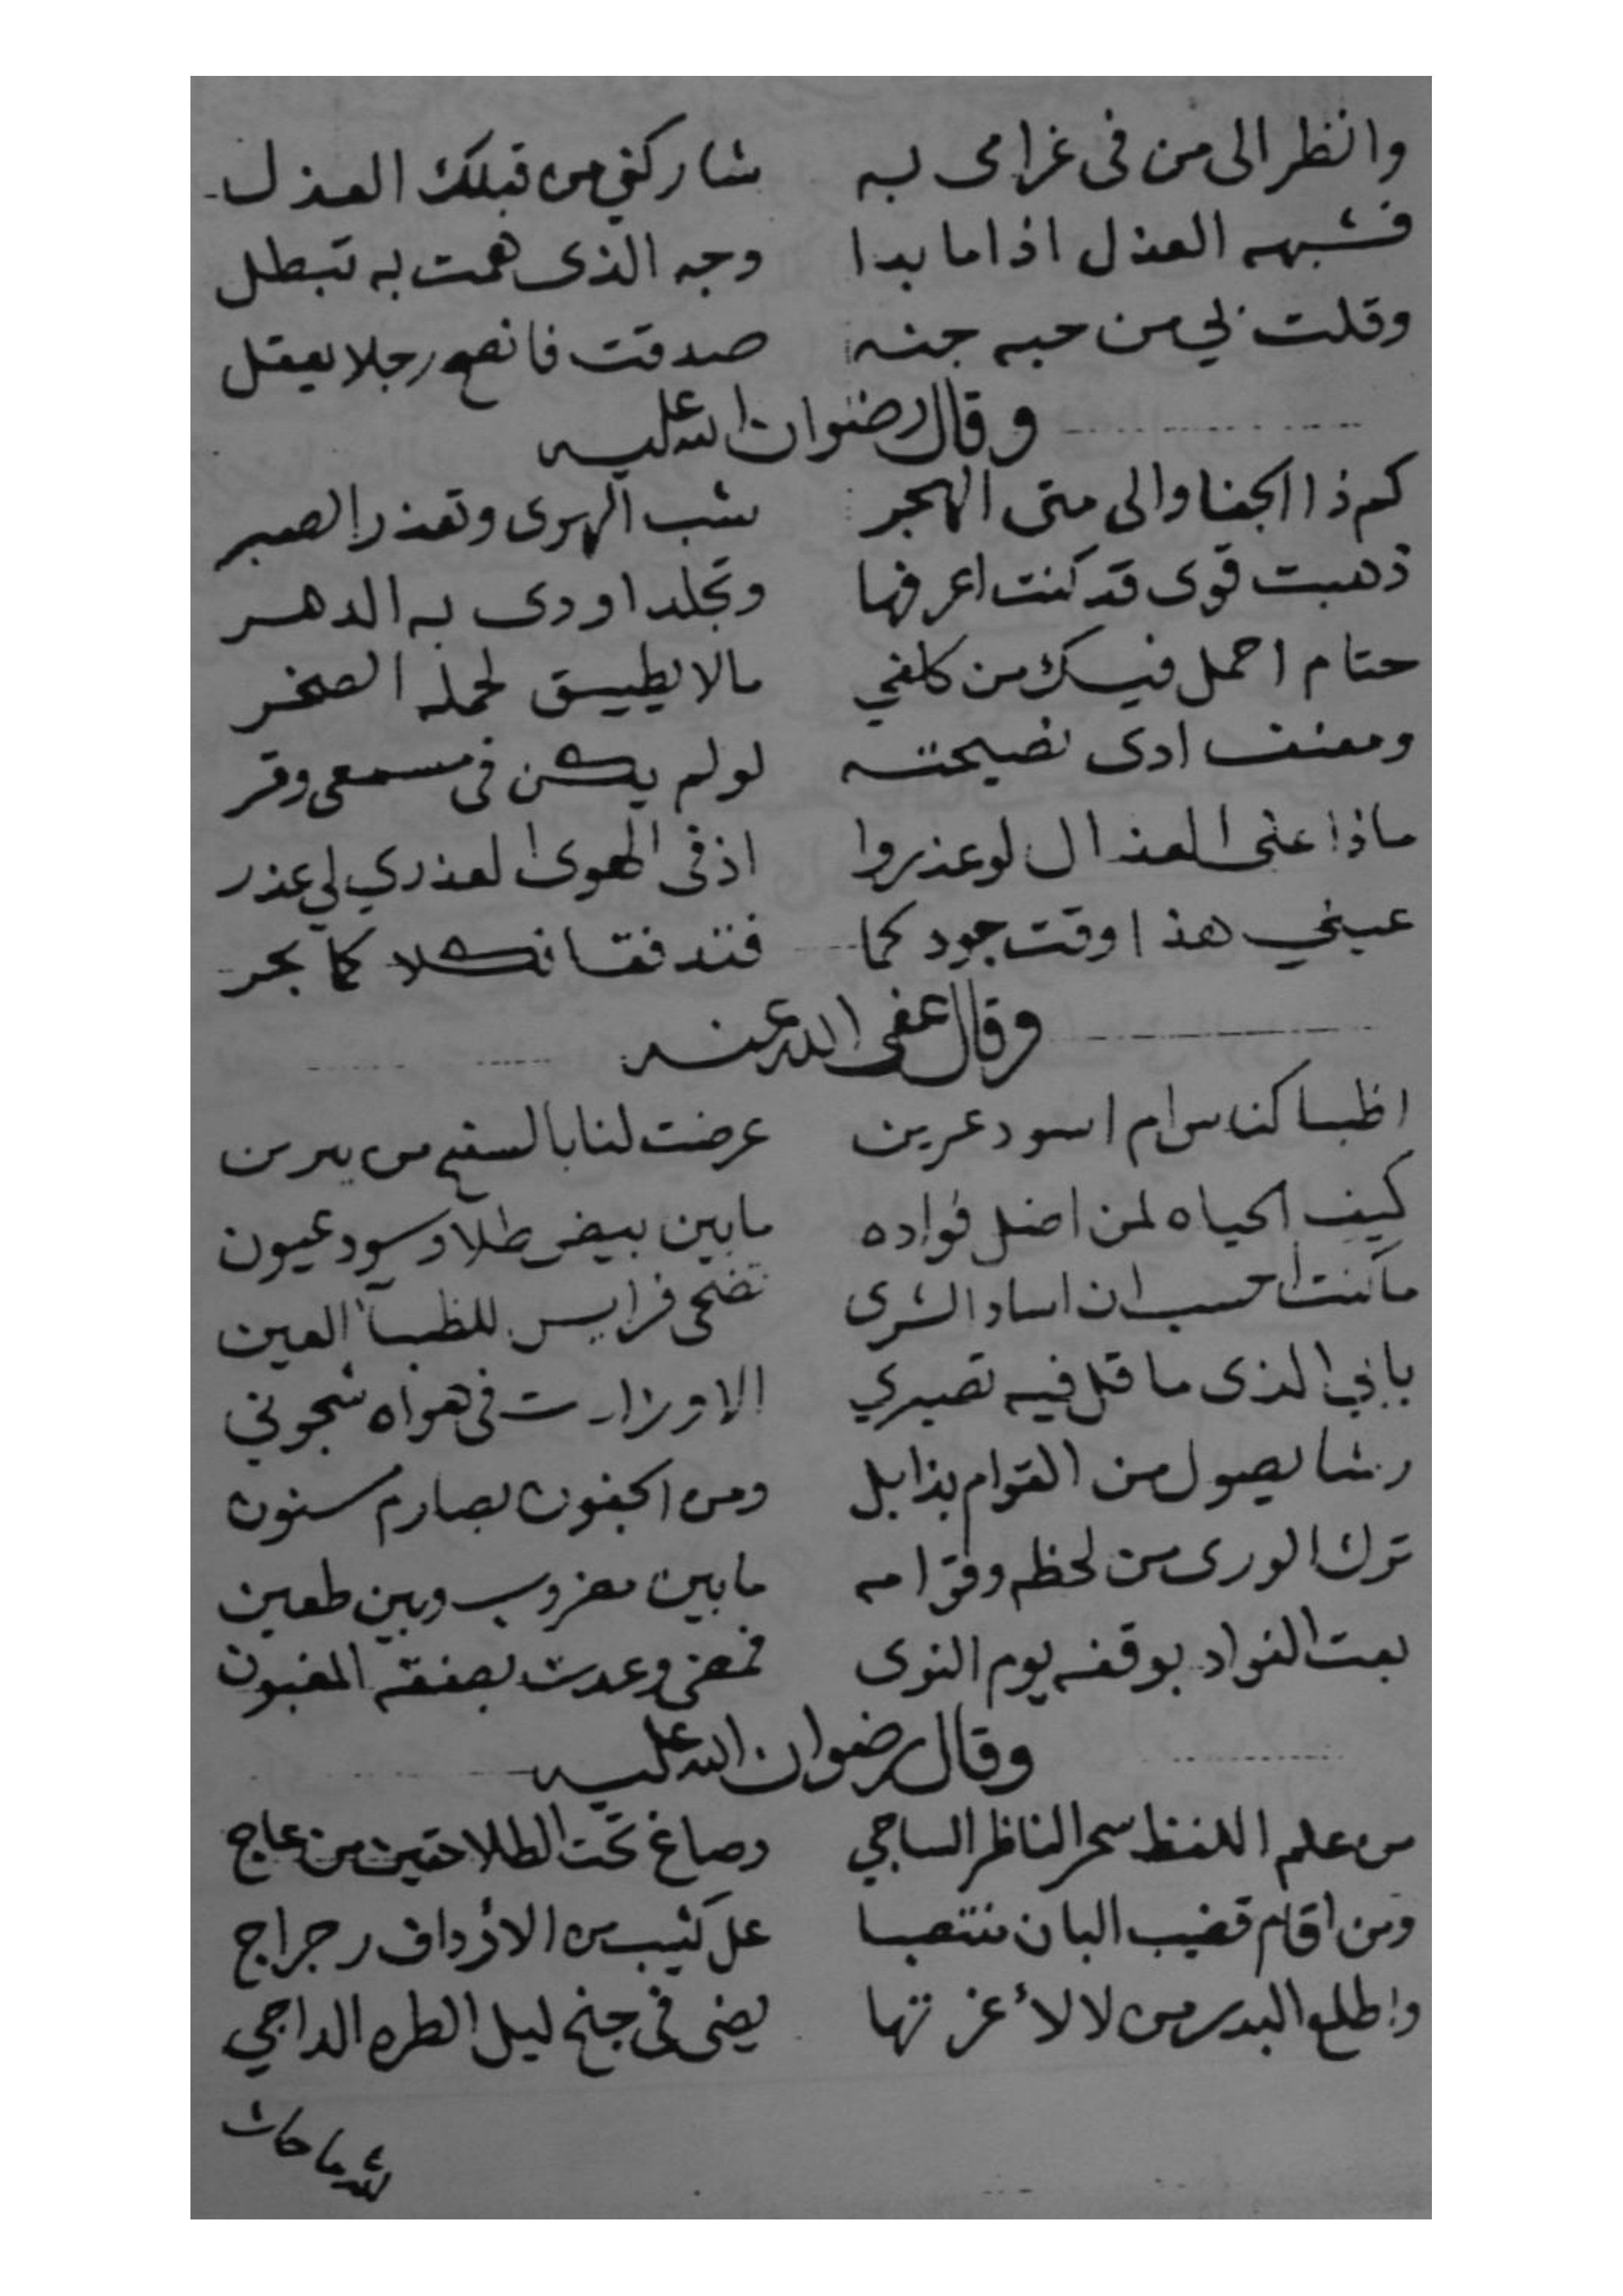 وانظر الى من فى غرامى به شاركنى من قبلك العذل
فشبهه العذل اذا ما بدا وجه الذى همت به تبطل
وقلت لي من حبه جنه صدقت فانصح رجلا يعقل
وقال رضوان الله عليه
كم ذا الجفا والى متى الهجر شب الهوى وتعذر الصبر
ذهبت قوى قد كنت اعرفها وتجلد اودى به الدهر
حتام احمل فيك من كلفي مالا يطيق لحمله الصخر
ومعنف ادى نصيحته لو لم يكن فى مسمعى وقر
ماذا على العذال لو عذروا اذ فى الهوى العذري لي عذر
عيني هذا وقت جودكما فتدفقا فكلاكما بحر
وقال عفى الله عنه
اظبا كناس ام اسود عرين عرضت لنا بالسفح من يبرين
كيف الحياه لمن اضل فواده ما بين بيض طلا وسود عيون
ما كنت احسب ان اساد الشرى تضحى فرايس للظبآ العين
بابي الذى ما قل فيه تصبري الا وزادت فى هواه شجوني
رشا يصول من القوام بذابل ومن الجفون بصارم مسنون
ترك الورى من لحظه وقوامه ما بين مضروب وبين طعين
بعت الفواد بوقفه يوم النوى فمضى وعدت بصفقه المغبون
وقال رضوان الله عليه
من علم اللفظ سحر الناظر الساجي وصاغ تحت الطلا حقين من عاج
ومن اقام قضيب البان منتصبا على كثيب من الارداف رجراج
واطلع البدر من لالأ غرتها يضى فى جنح ليل الطره الداجي
لله ما كان